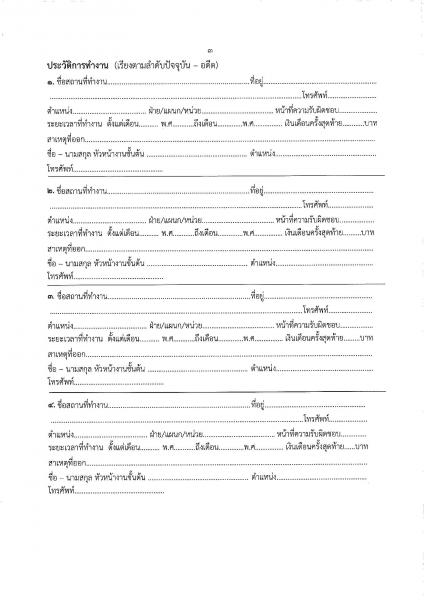 ๓
ประวัติการทำงาน (เรียงตามลำดับปัจจุบัน – อดีต)
๑. ชื่อสถานที่ทำงาน..........................................................ที่อยู่..............................................
..........................................................................................โทรศัพท์....................................
ตำแหน่ง.............................. ฝ่าย/แผนก/หน่วย.............................. หน้าที่ความรับผิดชอบ..............
ระยะเวลาที่ทำงาน ตั้งแต่เดือน......... พ.ศ..........ถึงเดือน............พ.ศ............. เงินเดือนครั้งสุดท้าย.........บาท
สาเหตุที่ออก....................................................................................................................
ชื่อ – นามสกุล หัวหน้างานชั้นต้น ........................................ ตำแหน่ง........................................
โทรศัพท์....................................
๒. ชื่อสถานที่ทำงาน..........................................................ที่อยู่..............................................
..........................................................................................โทรศัพท์....................................
ตำแหน่ง.............................. ฝ่าย/แผนก/หน่วย.............................. หน้าที่ความรับผิดชอบ..............
ระยะเวลาที่ทำงาน ตั้งแต่เดือน......... พ.ศ..........ถึงเดือน............พ.ศ............. เงินเดือนครั้งสุดท้าย.......บาท
สาเหตุที่ออก....................................................................................................................
ชื่อ – นามสกุล หัวหน้างานชั้นต้น ........................................ ตำแหน่ง........................................
โทรศัพท์....................................
๓. ชื่อสถานที่ทำงาน..........................................................ที่อยู่..............................................
..........................................................................................โทรศัพท์....................................
ตำแหน่ง.............................. ฝ่าย/แผนก/หน่วย.............................. หน้าที่ความรับผิดชอบ..............
ระยะเวลาที่ทำงาน ตั้งแต่เดือน......... พ.ศ..........ถึงเดือน............พ.ศ............. เงินเดือนครั้งสุดท้าย.......บาท
สาเหตุที่ออก....................................................................................................................
ชื่อ – นามสกุล หัวหน้างานชั้นต้น ........................................ ตำแหน่ง........................................
โทรศัพท์....................................
๔. ชื่อสถานที่ทำงาน..........................................................ที่อยู่..............................................
..........................................................................................โทรศัพท์....................................
ตำแหน่ง.............................. ฝ่าย/แผนก/หน่วย.............................. หน้าที่ความรับผิดชอบ..............
ระยะเวลาที่ทำงาน ตั้งแต่เดือน......... พ.ศ..........ถึงเดือน............พ.ศ............. เงินเดือนครั้งสุดท้าย......บาท
สาเหตุที่ออก....................................................................................................................
ชื่อ – นามสกุล หัวหน้างานชั้นต้น ........................................ ตำแหน่ง........................................
โทรศัพท์....................................